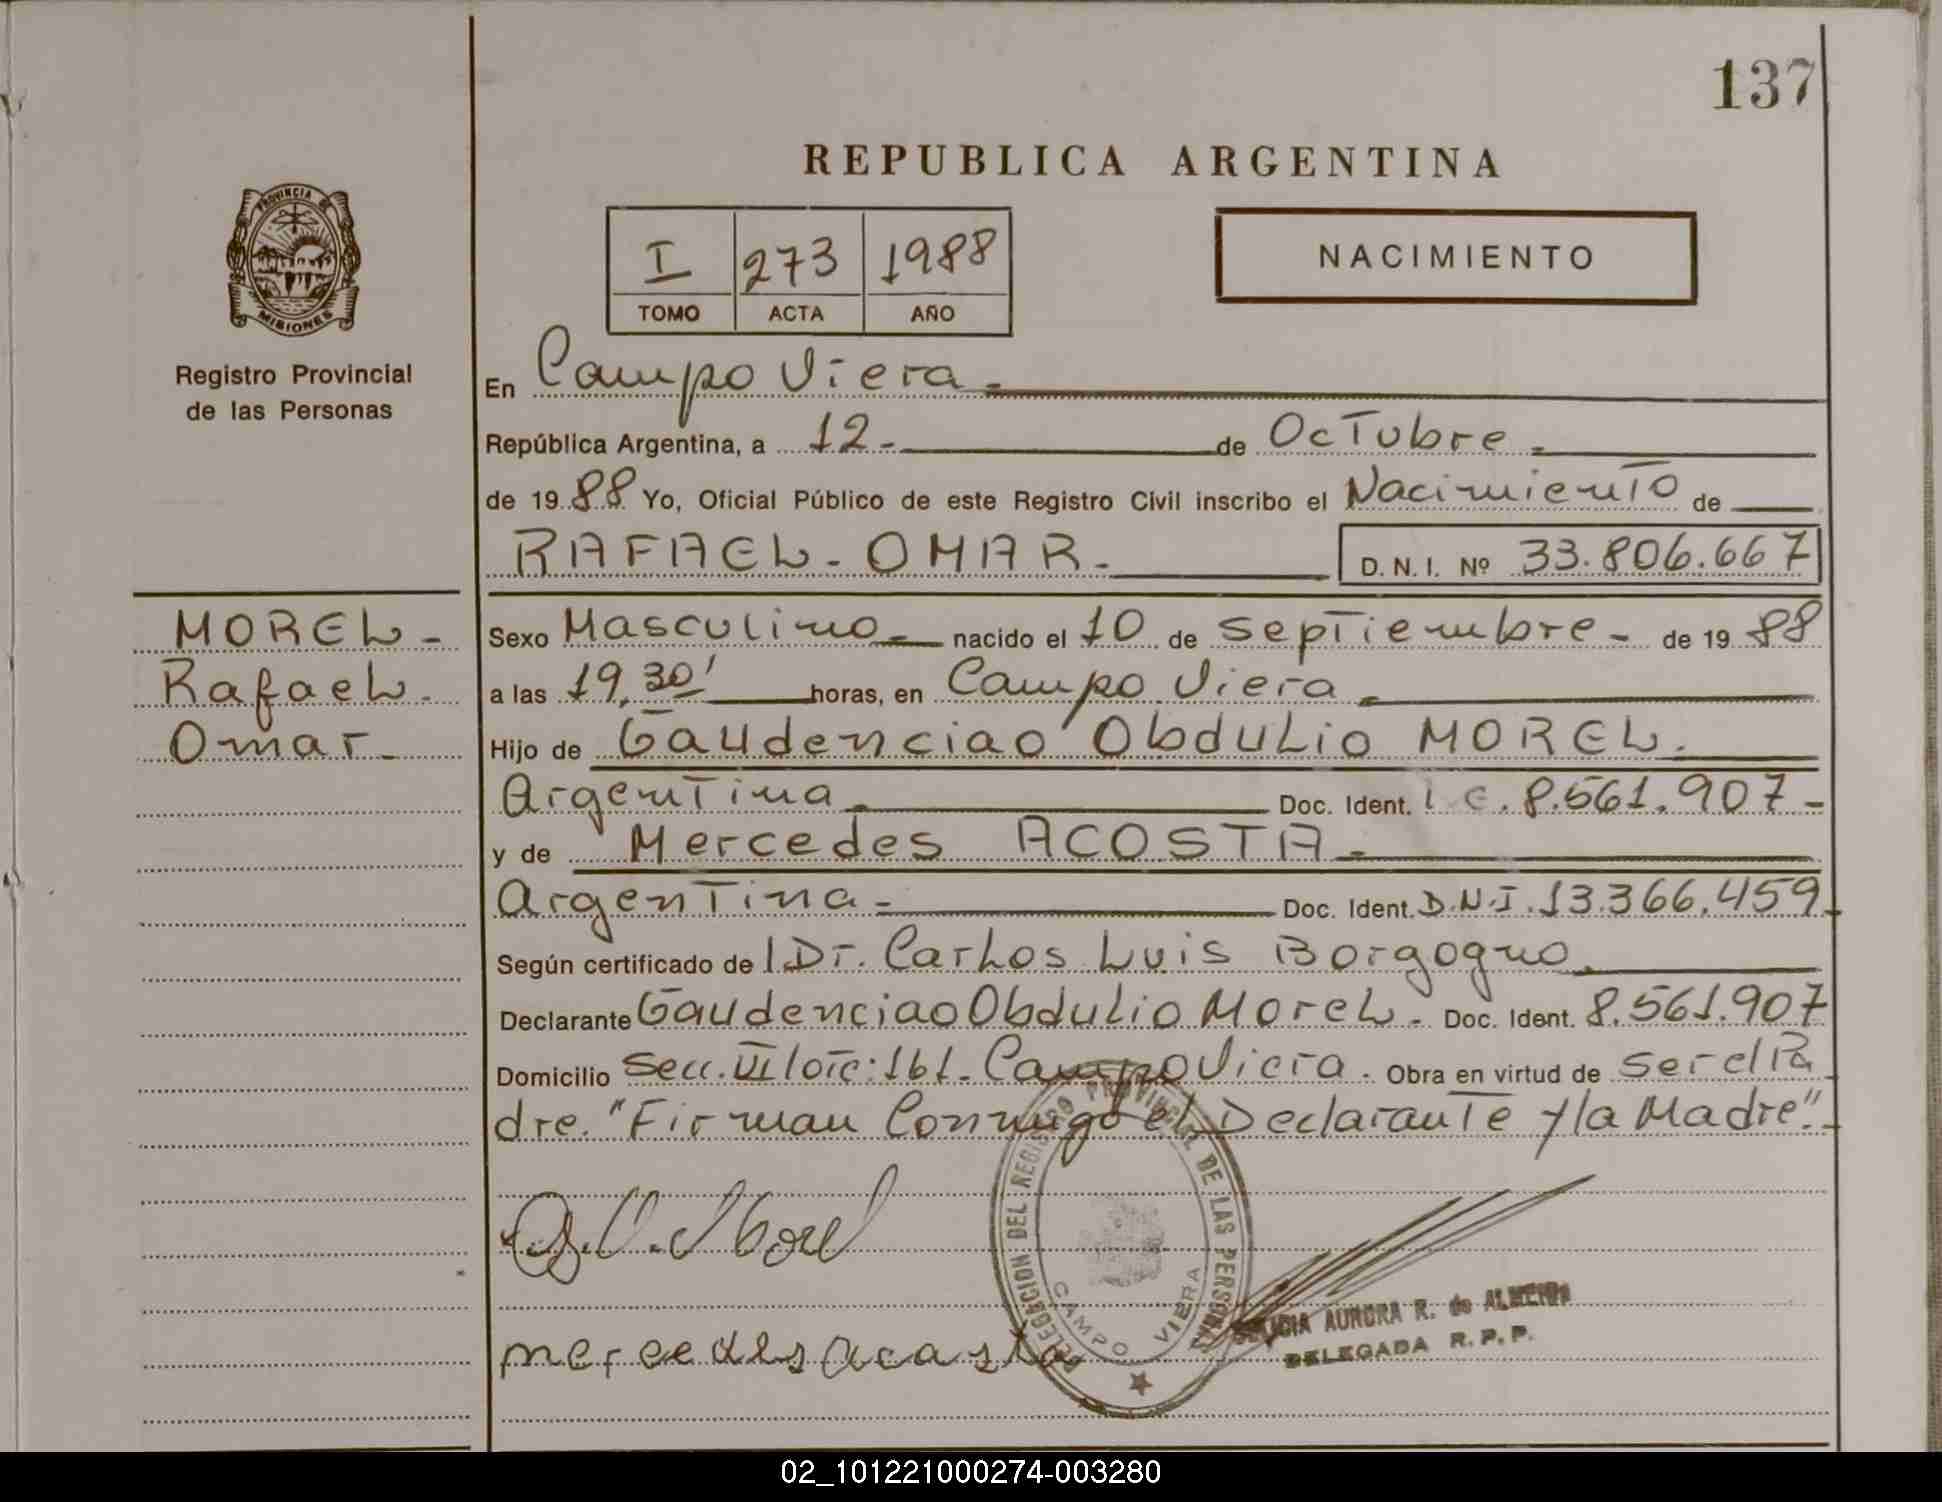 137
REPUBLICA ARGENTINA
PROVINCIA DE
MISIONES
Registro Provincial
de las Personas
I 273 1988
TOMO ACTA AÑO
NACIMIENTO
En Campo Viera.
República Argentina, a 12 - de Octubre.
de 1988 Yo, Oficial Público de este Registro Civil inscribo el Nacimiento de
RAFAEL - OMAR - D. N. I. Nº 33.806.667
MOREL -
Rafael -
Omar -
Sexo Masculino - nacido el 10 de septiembre - de 1988
a las 19,30' horas, en Campo Viera -
Hijo de Gaudenciao Obdulio MOREL.
Argentina - Doc. Ident. 8.561.907 -
y de Mercedes ACOSTA -
Argentina - Doc. Ident. D.N.I. 13.366.459
Según certificado de Dr. Carlos Luis Borgogno.
Declarante Gaudenciao Obdulio Morel - Doc. Ident. 8.561.907
Domicilio Secc. VI lote: 161 - Campo Viera. Obra en virtud de ser el Pa
dre. "Firman Conmigo el Declarante y la Madre".
DELEGACION DEL REGISTRO PROVINCIAL DE LAS PERSONAS
CAMPO VIERA
G. O. Morel
mercedes acasta
AURORA R. de ALMEIDA
DELEGADA R. P. P.
02_101221000274-003280